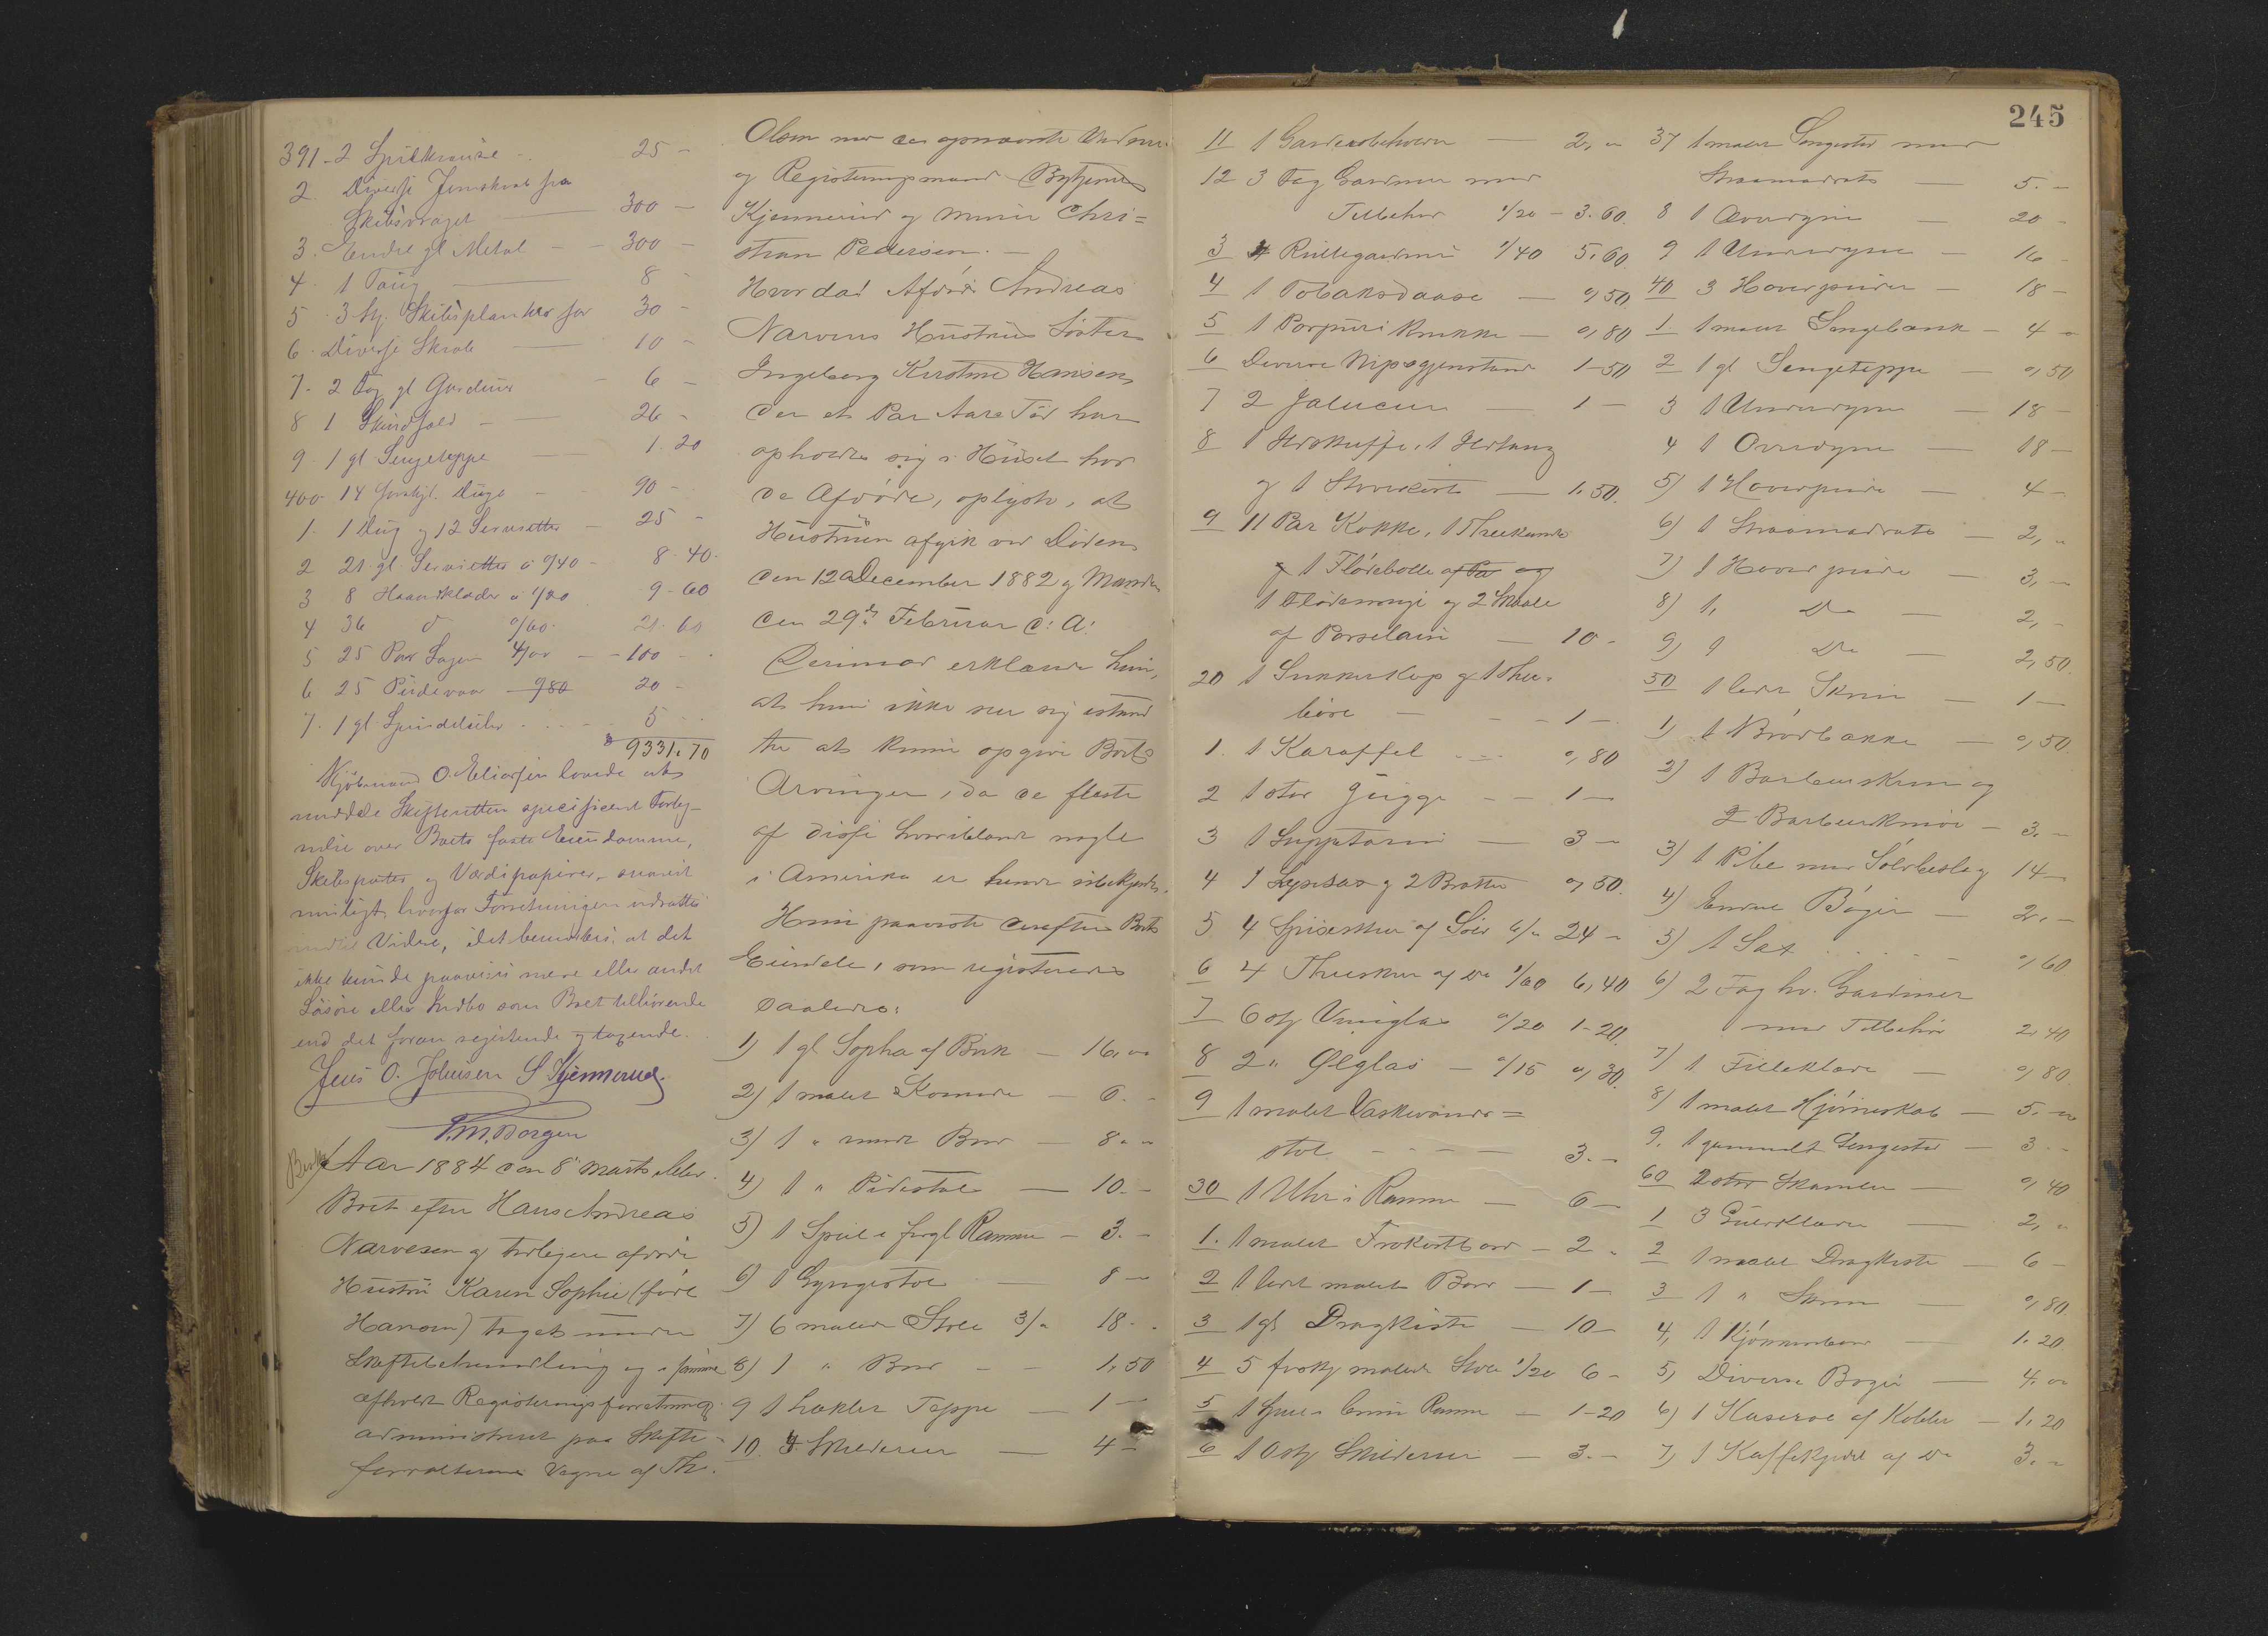 391 - 2 Spilkrause - 25 -
2. Diverse Jernskrab fra
Skibsvraget - 300 -
3. Endel gl Metal - - 300 -
4. 1 Taug - 8 -
5. 3 St. Skibsplanker for 30 -
6. Diverse Skrab - 10 -
7. 2 Fag gl Gardiner - 6 -
8 1 Skindfeld - 26 -
9. 1 gl Sengeteppe - 1.20
400 14 forskjl. Duge - 90 -
1. 1 Dug og 12 Servietter - 25 -
2 21 gl. Servietter à 0/40 - 8.40
3 8 Haandklæder à 1/20 9-60
4 36 d 0/60 21.60
5 25 Par Lagen 4/00 - - 100 -
6 25 Pudevaar 0/80 20 -
7. 1 gl. 5 -
9331.70
Kjøbmand O. Eliassen lovede at
meddele Skifteretten specificeret Forteg-
nelse over Boets faste Eiendomme,
Skibsparter og Værdipapirer, snarest
muligt, hvorfor Forretningen udsattes
indtil Videre, idet bemærkes, at det
ikke kunde paavises mere eller andet
Løsøre eller Indbo som Boet tilhørende
end det foran registrerede og taxerede.
Jens O. Johnsen S Kjennerud.
Borgen
Aar 1884 den 8de Marts blev
Boet efter Hans Andreas
Narvesen og tidligere afdøde
Hustru Karen Sophie (født
Hansen) taget under
Skiftebehandling og i samme
afholdt Registreringsforretning
administreret paa Skifte-
forvalterens Vegne af Th.
Olsen med de opnævnte Vurderings
og Registreringsmænd
Kjennerud og Murer Chri=
stian Pedersen. -
Hvorda! Afdøde Andreas
Narvens Hustrues Søster
Ingeborg Kirstine Hansen,
der et Par Aars Tid har
opholdt sig i Huset hos
de Afdøde, oplyste, at
Hustruen afgik ved Døden
den 12 December 1882 og Manden
den 29de Februar d: A:
Derimod erklærede hun,
at hun ikke saa sig istand
til at kunne opgive Boets
Arvinger, da de fleste
af disse hvoriblandt nogle
i Amerika er hende ubekjendte.
Hun paaviste derefter Boets
Eiendele, som registreredes
saaledes:
1) 1 gl Sopha af Birk - 16,00
2) 1 malet Komode - 6. -
3) 1 " rundt Bord - 8 - "
4) 1 " Pidestal - 10. -
5) 1 Speil i forgl Ramme - 3. -
6) 1 Gyngestol - 8 -
7) 6 malede Stole 3/" 18 - .
8) 1 " Bord - - 1,50
9 1 heklet Teppe - 1 -
10. 4 Skilderier - 4 -
245
11 1 2, "
12 3 Fag Gardiner med
Tilbehør 1/20 - 3.60.
3 4 Rullegardiner 1/40 5.60.
4 1 Tobaksdaase - 0,50
5 1 Porpuri Krukke - 0,80
6 Diverse Nipsgjenstande 1-50
7 2 Jalucier - 1 -
8 1 Ildskuffe, 1 Ildtang
og 1 - 1.50.
9 11 Par Kopper, 1 Theekande
og 1 Flødebolle
1 Flødemugge og 2 Skaale
af Porselain - 10 -
20 1 Sukkerkop og 1 Thee-
- - - 1 -
1. 1 Karaffel - 0,80
2 1 stor Jugge - - 1 -
3 1 Suppeterin - 3 -
4 1 Lysesax og 2 Bretter 0,50.
5 4 Spiseskeer af Sølv 6/" 24 -
6 4 Theeskeer af Do 1/60 6,40
7 6 st Vinglas 0/20 1-20.
8 2 " Ølglas - 0/15 0,30.
9 1 malet Vaskevands=
stol - - - 3. -
30 1 Uhr i Ramme - 6 -
1. 1 malet Frokostbord - 2 -
2 1 lidet malet Bord - 1 -
3 1 gl Dragkiste - 10 -
4 5 forskj malede Stole 1/20 6 -
5 1 Speil i brun Ramme - 1-20
6 10 st Skilderier - 3. -
37 1 malet Sengested med
Straamadrats - 5. -
8 1 Overdyne - 20 -
9 1 Underdyne - 16 -
40 3 Hovedpuder - 18 -
1 1 malet Sengebænk - 4 -
2 1 gl Sengeteppe - 0,50
3 1 Underdyne - 18 -
4 1 Overdyne - 18 -
5) 1 Hovedpude - 4 -
6) 1 Straamadrats - 2, "
7) 1 Hovedpude - 3, -
8) 1, Do - 2, -
9) 1 Do - 2,50
50 1 lidet Skrin - 1 -
1) 1 Brødbakke - 0,50
2) 1 Barberskrin og
2 Barberknive - 3. -
3) 1 Pibe med Sølvbeslag 14 -
4) Endel Bøger - 2. -
5) 1 Sax - 0,60
6) 2 Fag hv. Gardiner
med Tilbehør 2,40
7) 1 Filleklæde - 0,80
8) 1 malet Hjørneskab - 5. -
9. 1 gammelt Sengested - 3 -
60 2 Skamler - 0,40
1 3 Gulvklæder - 2, "
2 1 malet Dragkiste - 6 -
3 1 " Skrin - 0,80.
4, 1 Kjøkkenbord - 1.20
5, Diverse Bøger - 4. "
6) 1 Kaserol af Kobber - 1,20
7) 1 Kaffekjedel af Do 3. -